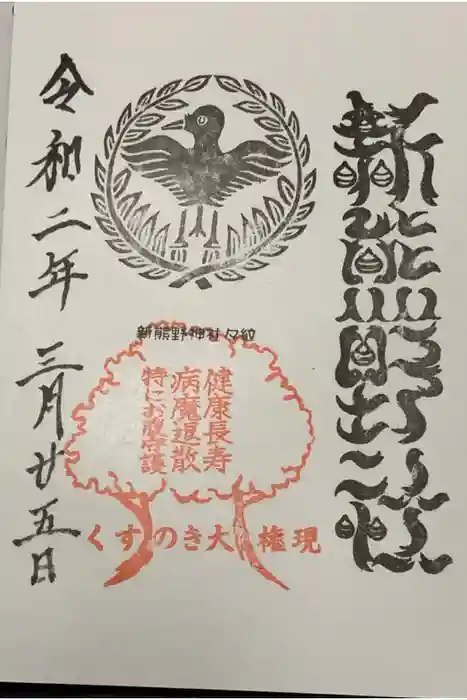 新熊野
新熊野神社々紋
健康長寿
病魔退散
特にお腹守護
くすのき大権現
令和二年三月廿五日